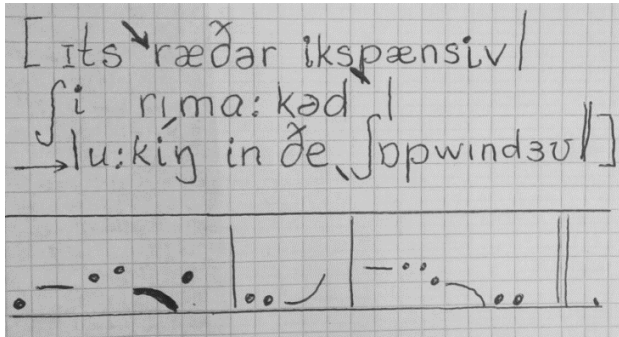 [ɪts ↘ræðər ikspænsiv|
ʃi rɪˌma:kəd↘|
→lu:kiŋ in ðe ˎʃɒpwɪndɜʊ‖]